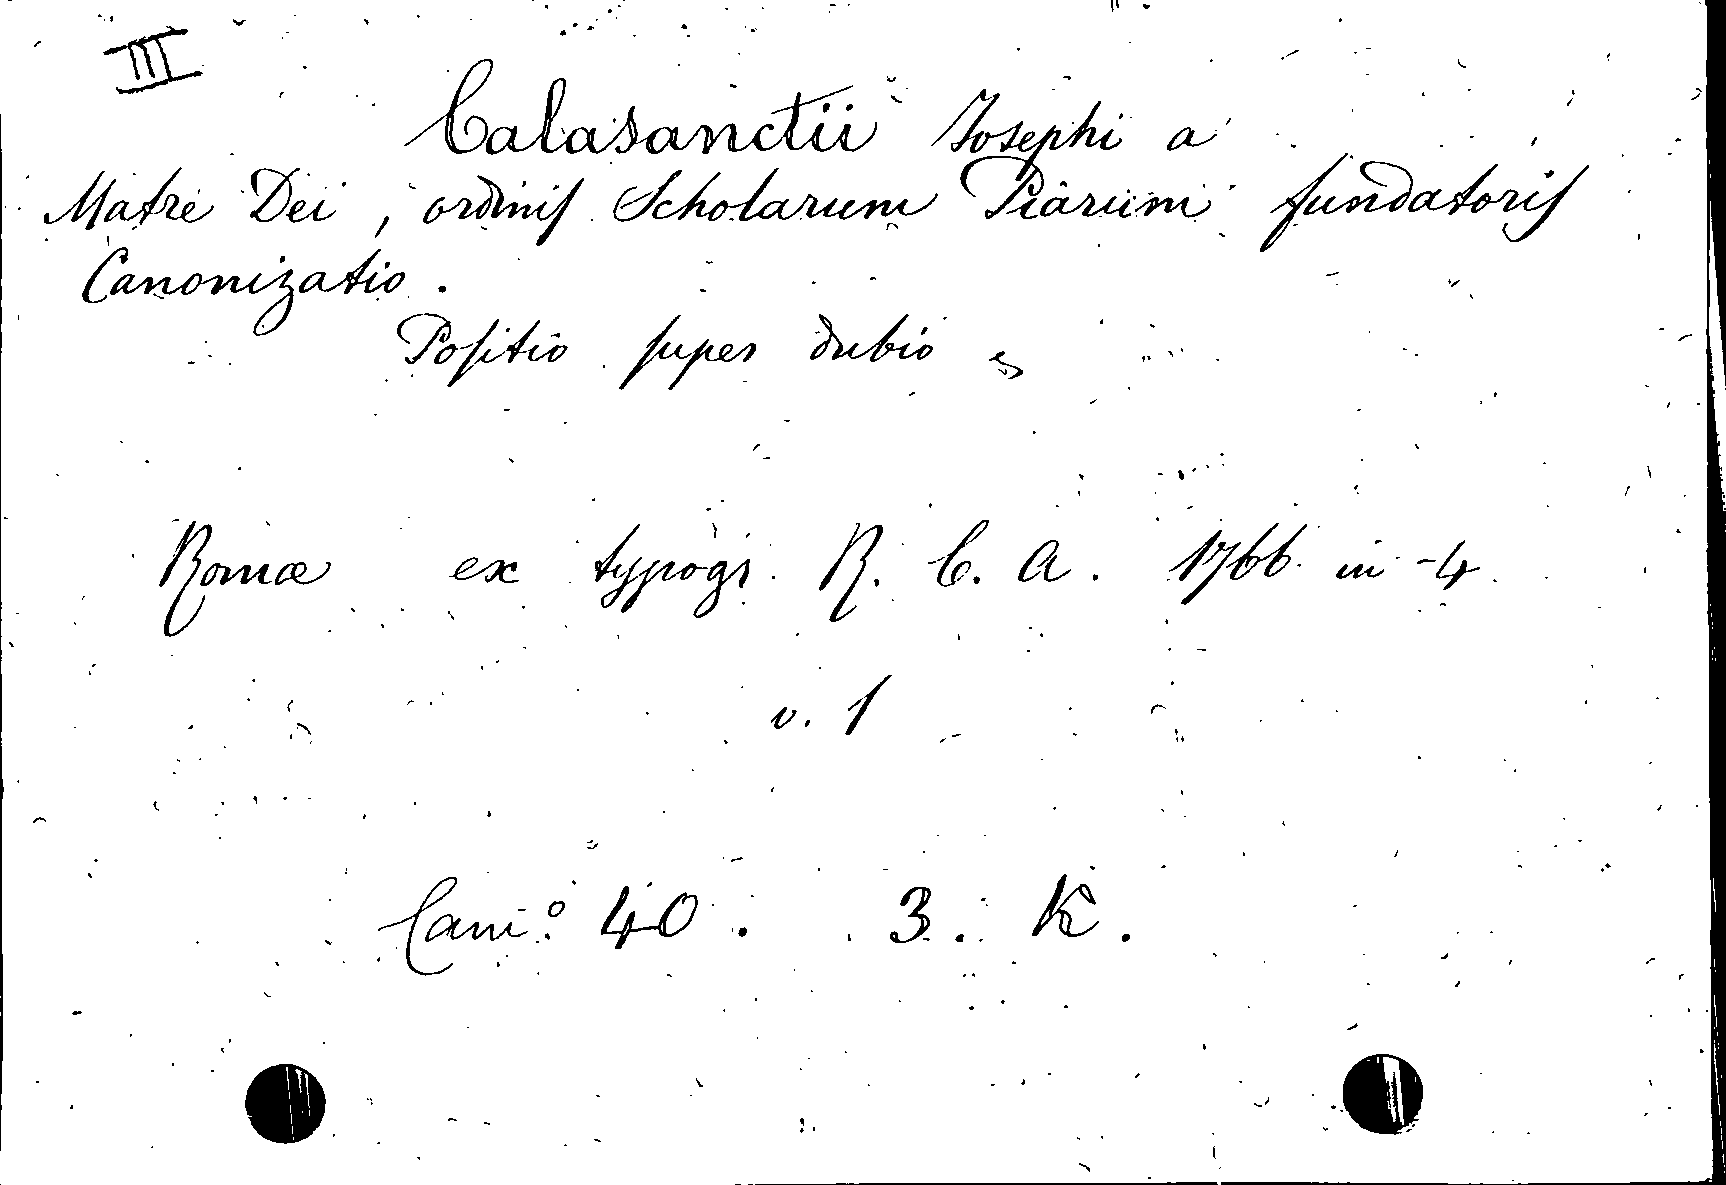 III
Calasanctii Josephi a
Matre Dei, ordinis Scholarum Piarum fundatoris
Canonizatio.
Positio super dubio
Romæ ex typogr. R. C. A. 1766 in-4
v. 1
Cam.º 40. 3. K.